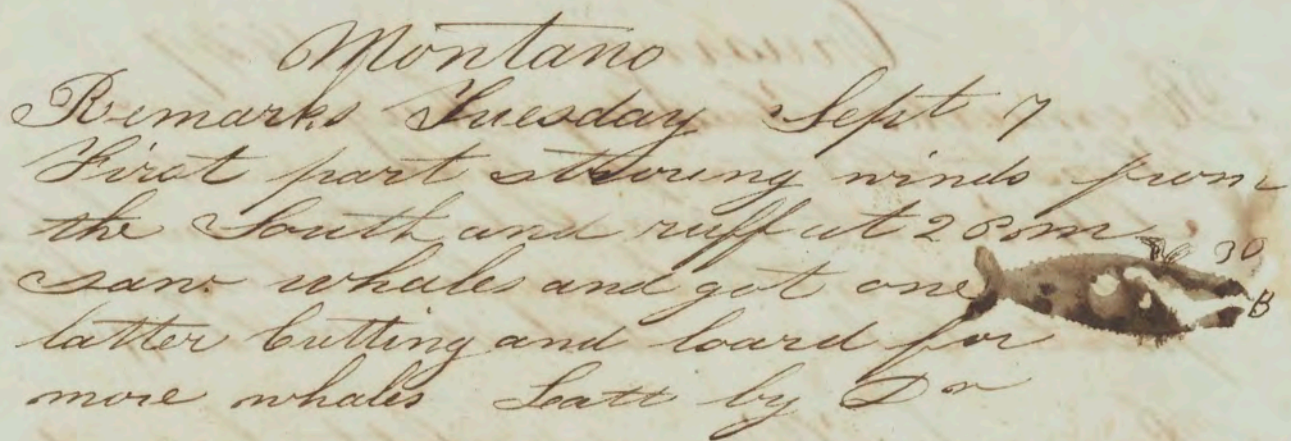 Montano
Remarks Tuesday Sept 7
First part stroung winds from
the South and ruff at 2 Pm
saw whales and got one
30
B
latter Cutting and loard for
more whales Latt by Dr